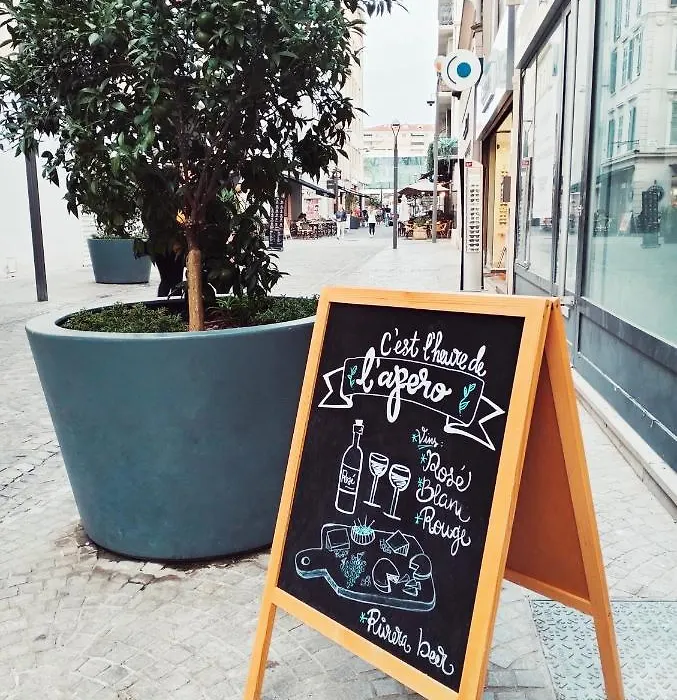 C'est l'heure de
l'apero
*Vins:
*Rosé
*Blanc
*Rouge
Rosé
*Riviera beer